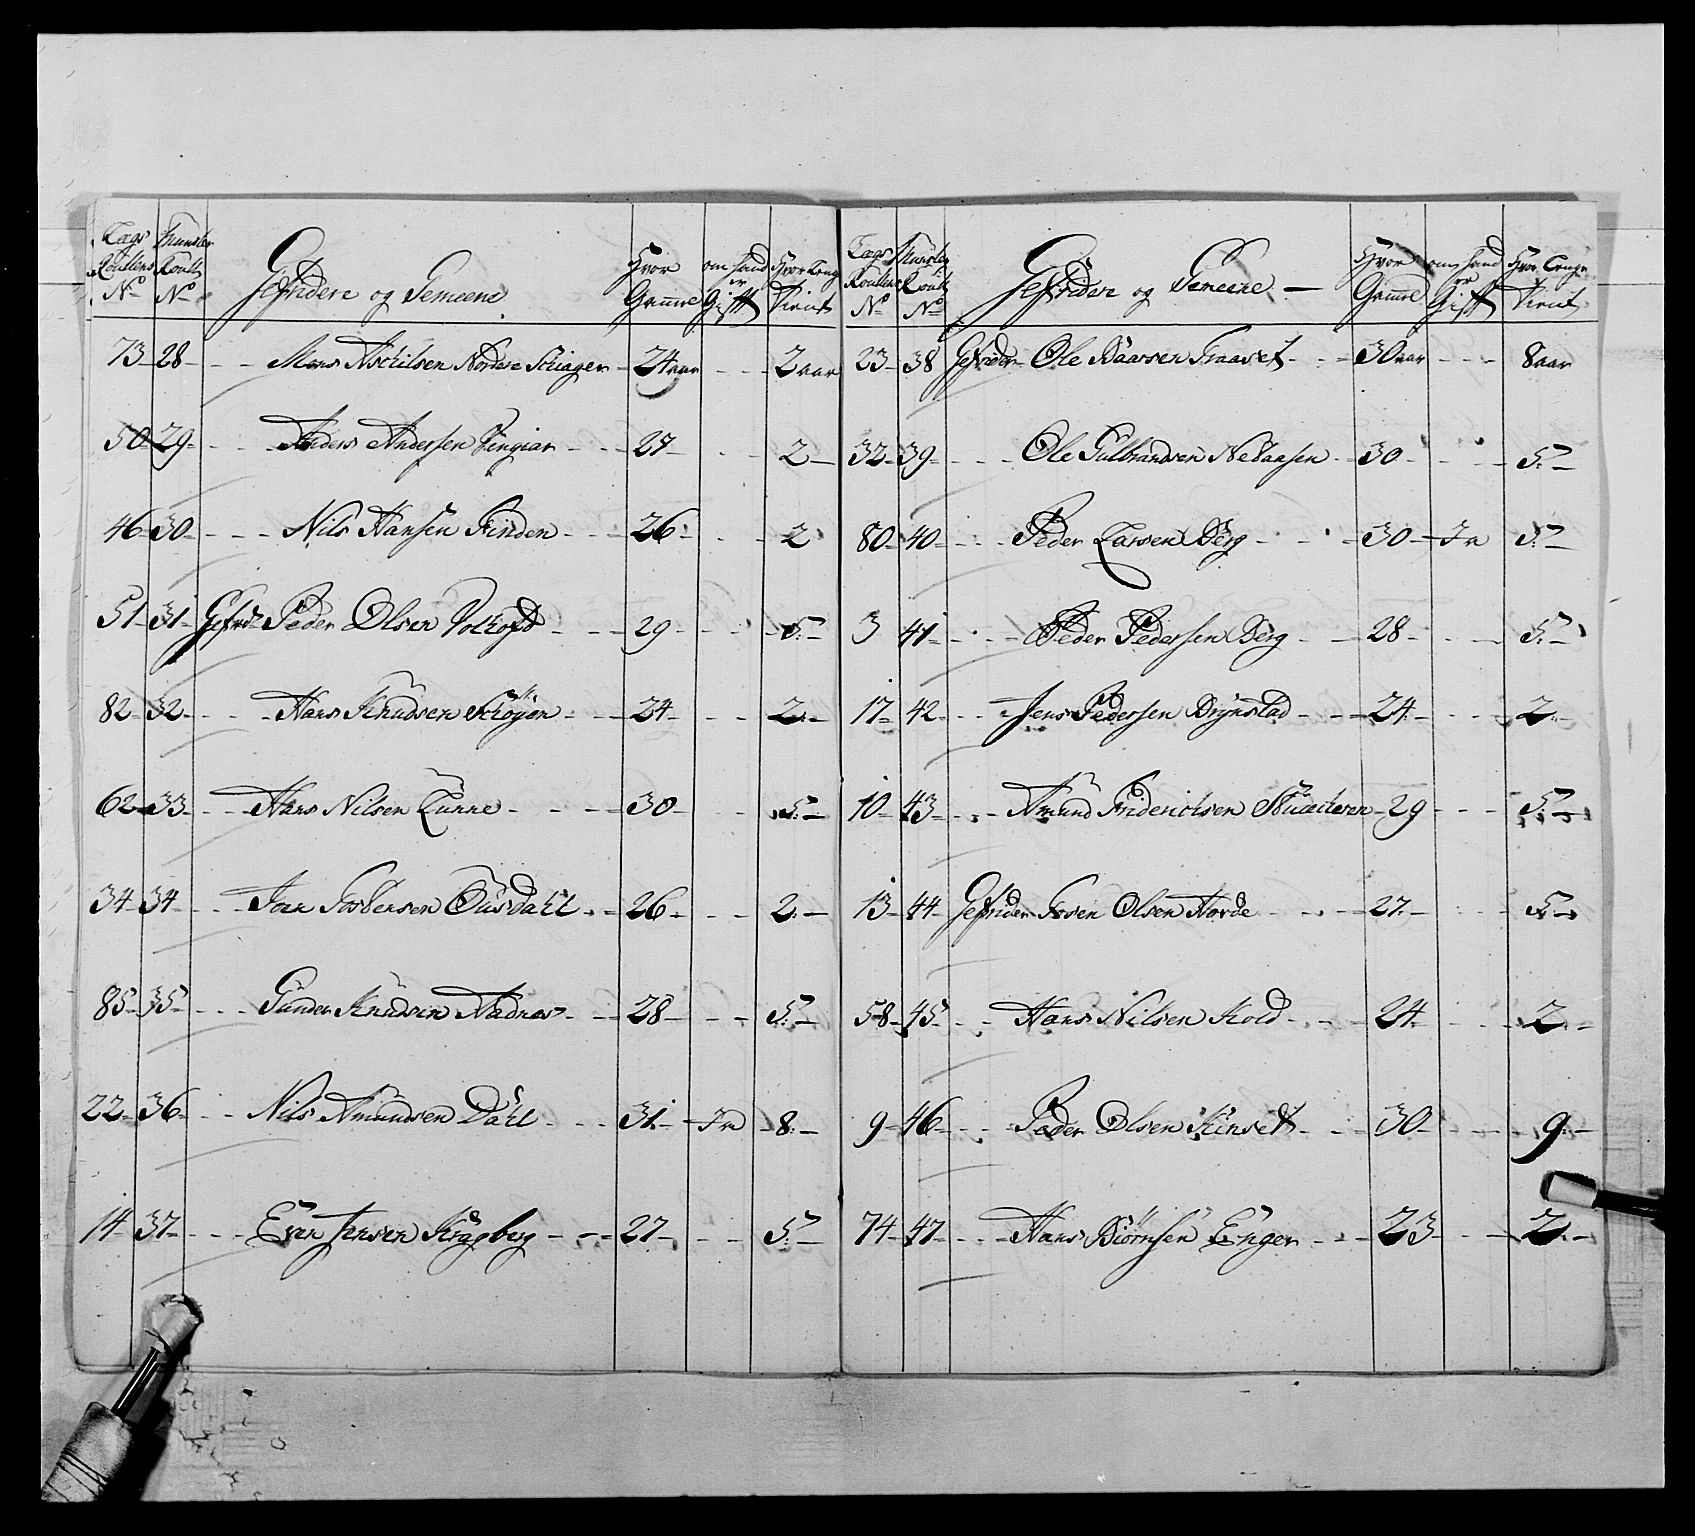 Lægs Roullens No | Munster Roull No | Gefridere og Gemeene | Hvor Gamel | om hand er Gift | Hvor Længe Tient
73 - 28 - - - Mons Aschilsen Nordre Schiager - 24 aar - - - 2 aar
50 - 29 - - - Anders Andersen Vingiar - - - 27 - - - 2 -
46 - 30 - - - Nils Hansen Finden - - - 26 - - - 2
51 - 31 - Gefrd: Peder Olsen - - - 29 - - - 5: -
82 - 32 - - - Hans Knudsen Schöyen - - - 24 - - - 2: -
62 - 33 - - - Hans Nilsen Lunne - - - 30 - - - 5: -
34 - 34 - - - Joen Torbensen Ousdahl - - 26 - - - 2: -
85 - 35 - - - Gunder Knudsen Aadnes - - 28 - - - 5: -
22 - 36 - - - Nils Amundsen Dahl - - - 31 - Ja - 8: -
14 - 37 - - - Even Jensen Kragberg - - - 27 - - - 5: -
Lægs Roullens No | Munster Roull No | Gefridere og Gemeene - | Hvor Gamel | om hand er Gift | Hvor Længe Tient
23 - 38 Gefrider Ole Baarsen Traaset - - - 30 aar - - - 8 aar
32 - 39 - - - Ole Gulbrandsen Nedaasen - - 30 - - - 5: -
80 - 40 - - - Peder Larsen Berg - - - 30 - Ja 5: -
3 41 - - - Peder Pedersen Berg - - - 28 - - - 5: -
17 - 42 - - - Jens Pedersen Brynstad - - - 24 - - - 2: -
10 - 43 - - - Amund Friderichsen - 29 - - - 5: -
13 - 44 - Gefrider Tosen Olsen Horde - - - 27 - - - 5: -
58 - 45 - - - Hans Nilsen Kold - - - 24 - - - 2: -
9 - 46 - - - Peder Olsen Kinset - - - 30 - - - 9: -
74 - 47 - - - Hans Biörnsen Enger - - - 23 - - - 2: -